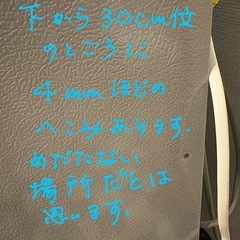 下から30cm位
のところに
4mmほどの
へこみあります.
めだたない
場所だとは
思います.